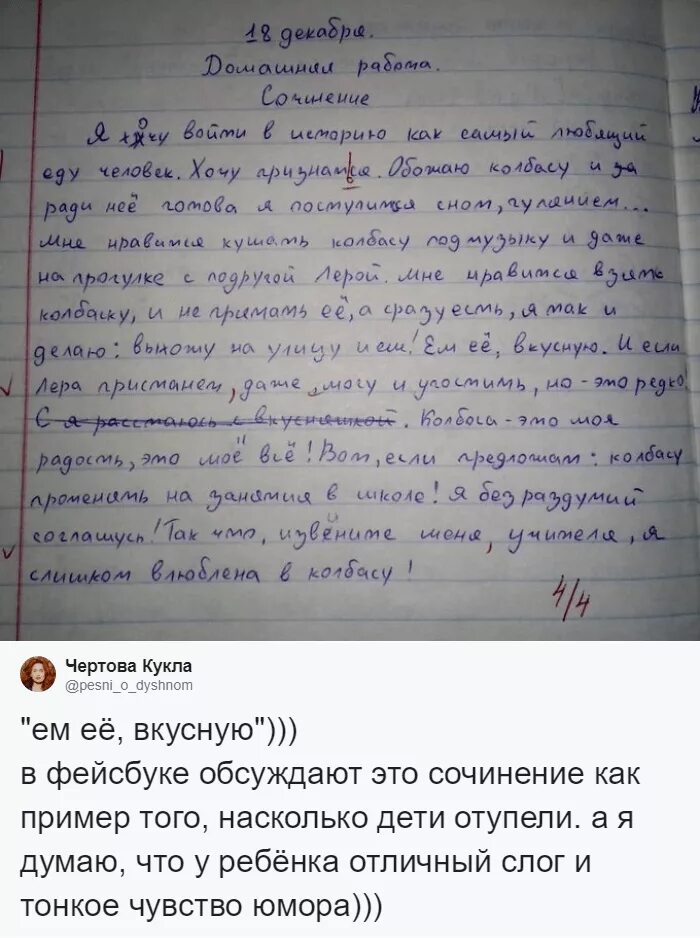 18 декабря.
Домашняя работа.
Сочинение
Я хочу войти в историю как самый любящий
еду человек. Хочу признаться. Обожаю колбасу и за
ради неё готова я поступится сном, гулянием...
Мне нравится кушать колбасу под музыку и даже
на прогулке с подругой Лерой. Мне нравится взять
колбаску, и не прятать её, а сразу есть, я так и
делаю: выхожу на улицу и ем! Ем её, вкусную. И если
Лера пристанет, даже, могу и угостить, но - это редко!
С я расстаюсь с вкусняшкой. Колбаса - это моя
радость, это моё всё! Вот, если предложат: колбасу
променять на занятия в школе! Я без раздумий
соглашусь! Так что, извените меня, учителя, я
слишком влюблена в колбасу!
4/4
Чертова Кукла
@pesni_o_dyshnom
"ем её, вкусную")))
в фейсбуке обсуждают это сочинение как
пример того, насколько дети отупели. а я
думаю, что у ребёнка отличный слог и
тонкое чувство юмора)))